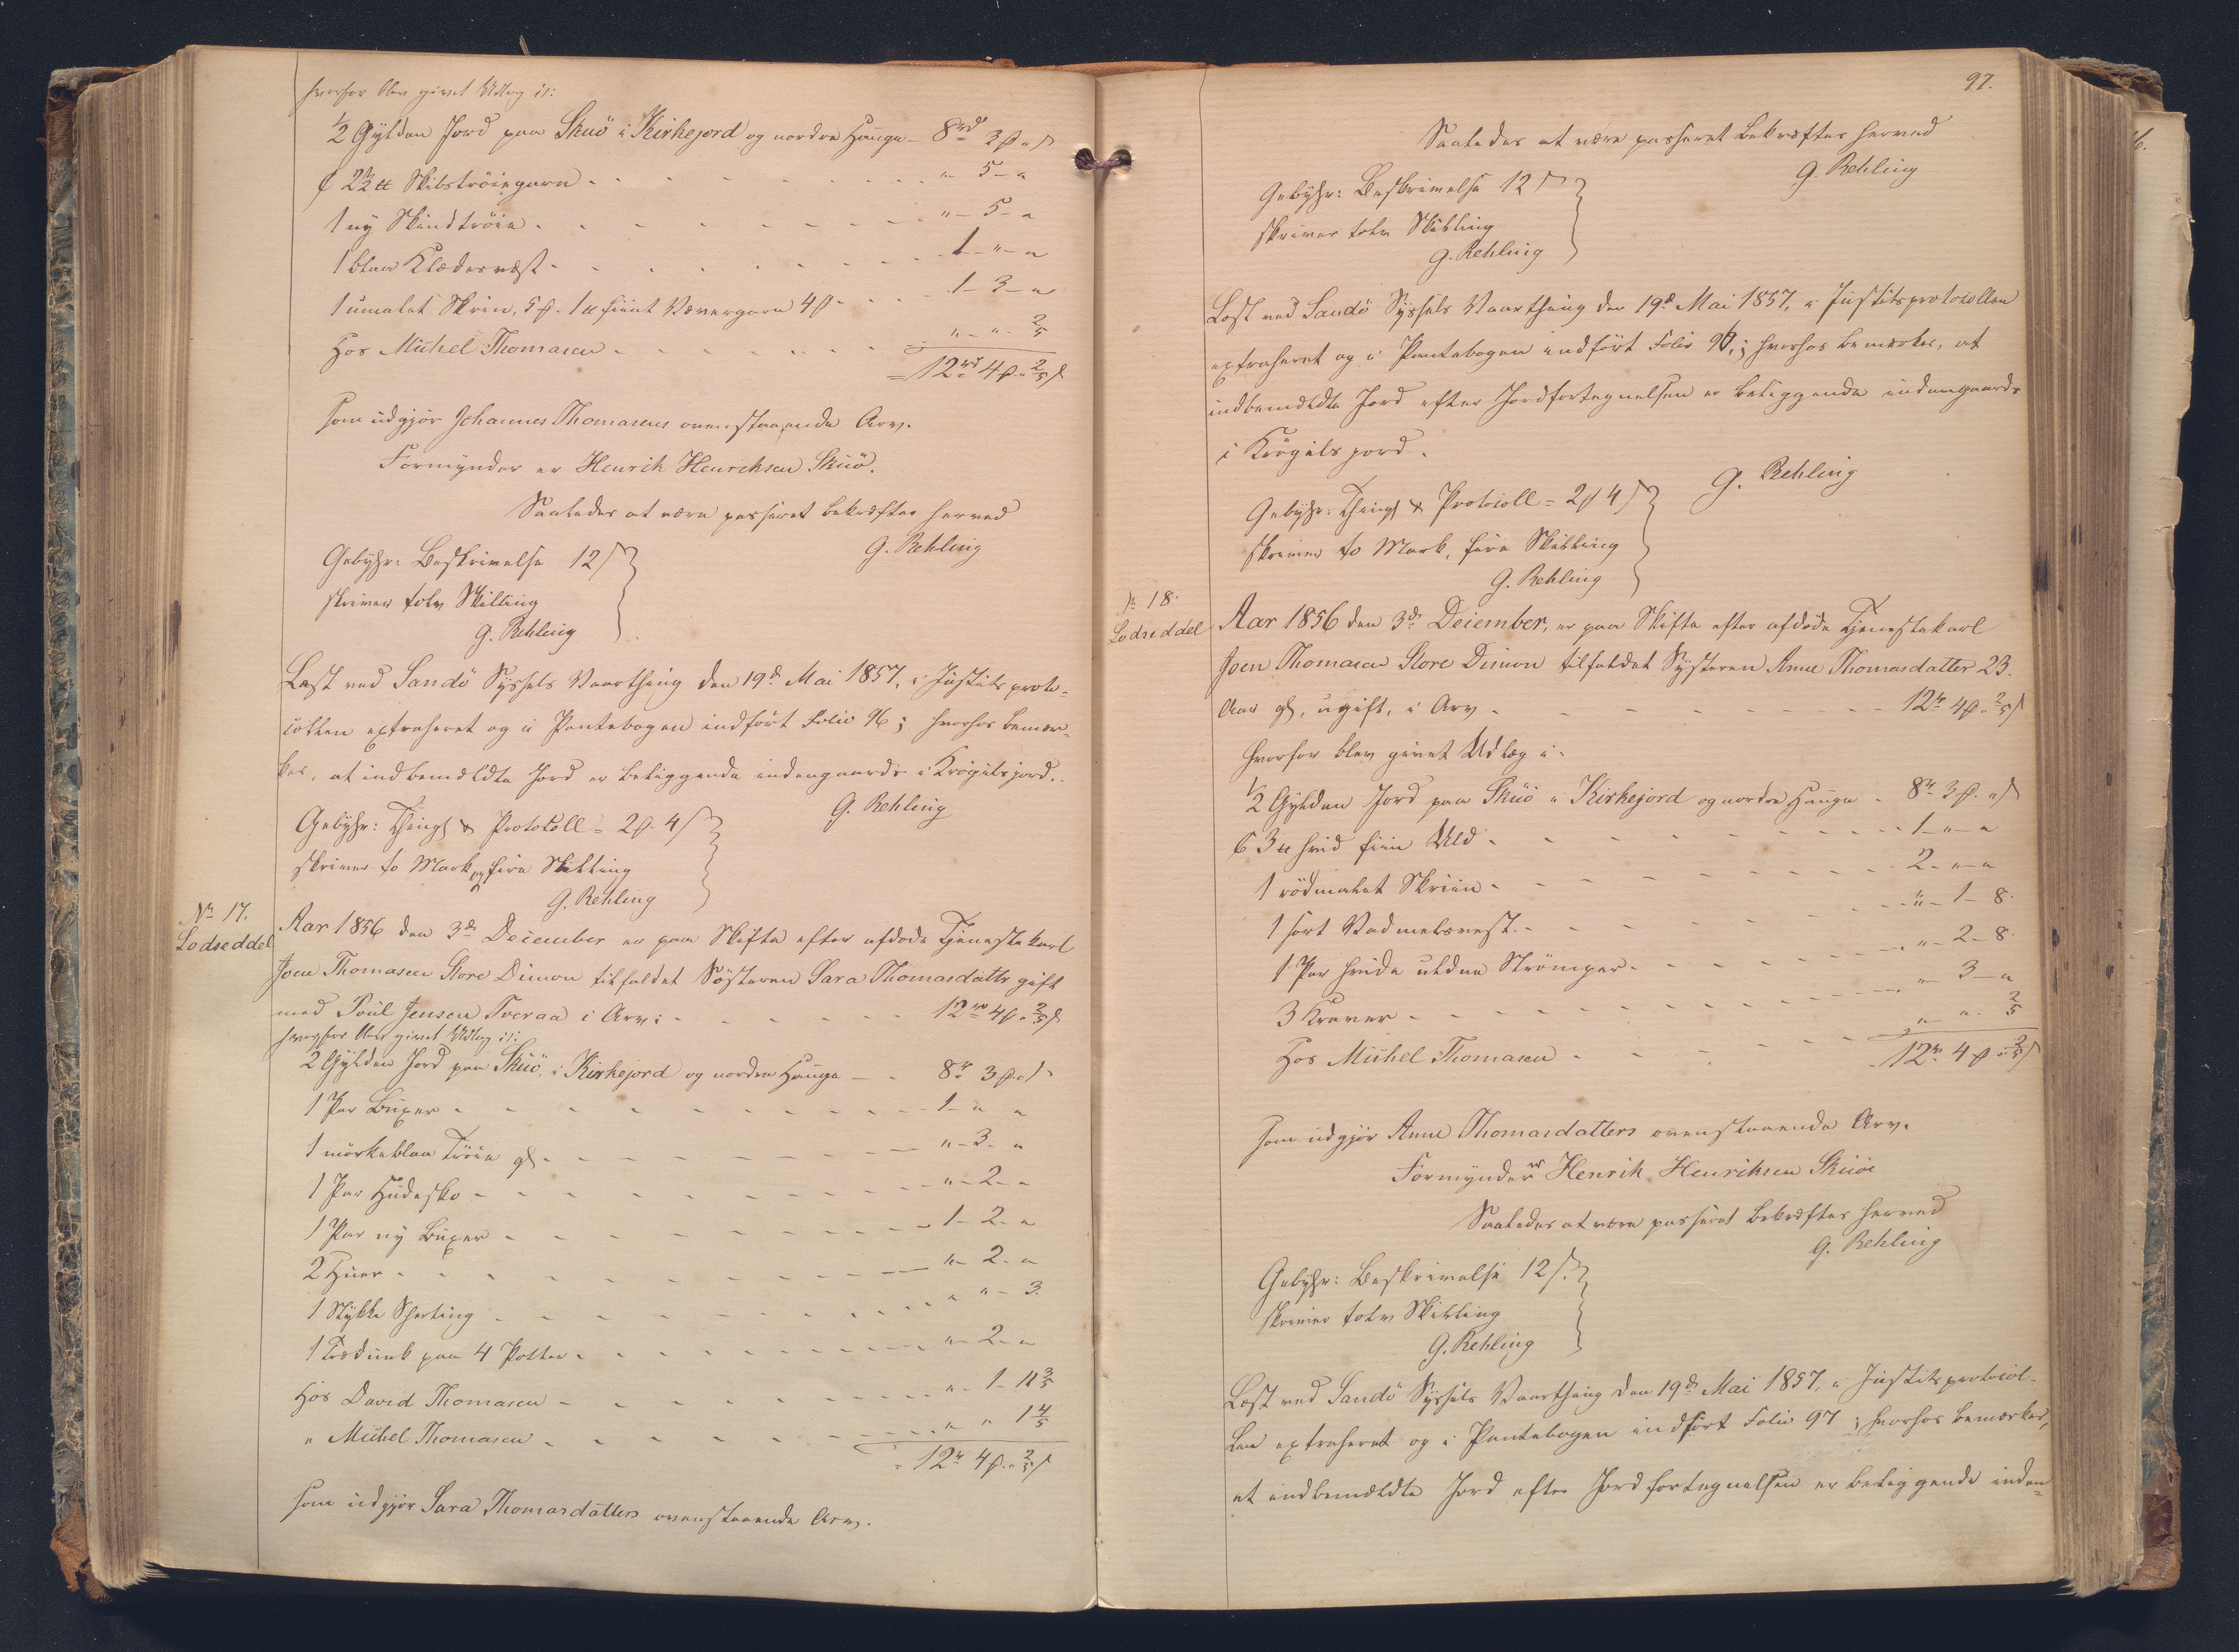 hvorfor blev givet Udlæg i:
1/2 Gylden Jord paa Skuö i Kirkejord og nordre Hauge - 8rd 3 ß " s
2 1/2 ℔ Skibströiegarn - - - " - 5 - "
1 ny Skindtröie - - - " - 5 - "
1 blaa Klædesvest - - - 1 - " - "
1 umalet Skrin, 5 ß. 1 ℔ fiint Vævergarn 4 ß - - - 1 - 3 - "
Hos Michel Thomasen - - - " - " - 2/5
= 12rd 4 ß " 2/5 s
som udgjör Johannes Thomasens ovenstaaende Arv.
Formynder er Henrik Henrichsen Skuö.
Saaledes at være passeret bekræftes herved
G. Rehling
Gebyhr: Beskrivelse 12 s
skriver tolv Skilling
G. Rehling
Læst ved Sandö Syssels Vaarthing den 19de Mai 1857, i Justitsproto-
collen extraheret og i Pantebogen indfört Folio 96; hvorhos bemær-
kes, at indbemeldte Jord er beliggende indengaards i Krögilsjord.
G. Rehling
Gebyhr: Thingl & Protokoll = 2 ß. 4 s
skriver to Mark og fire Skilling
G. Rehling
No 17.
Lodseddel
Aar 1856 den 3de December er paa Skifte efter afdöde Tjenestekarl
Joen Thomasen Store Dimon tilfaldet Sösteren Sara Thomasdatter gift
med Poul Jensen Tveraa i Arv: - - - 12rd 4 ß " 2/5 s
hvorfor blev givet Udlæg i:
2 Gylden Jord paa Skuö, i Kirkejord og nordre Hauge - - 8rd 3 ß " s
1 Par Buxer - - - 1 - " - "
1 mörkeblaa Tröie gl. - - - " - 3 - "
1 Par Hudesko - - - " - 2 - "
1 Par ny Buxer - - - 1 - 2 - "
2 Huer - - - " - 2 - "
1 Stykke Sherting - - - " - " - 3.
1 Trædunk paa 4 Potter - - - " - 2 - "
Hos David Thomasen - - - " - 1 - 11 3/5
" Michel Thomasen - - - " " 1 4/5
= 12rd 4 ß. " 2/5 s
som udgjör Sara Thomasdatters ovenstaaende Arv.
97.
Saaledes at være passeret bekræftes herved
G. Rehling
Gebyhr: Beskrivelse 12 s
skriver tolv Skilling
G. Rehling
Læst ved Sandö Syssels Vaarthing den 19de Mai 1857, i Justitsprotocollen
extraheret og i Pantebogen indfört Folio 96,; hvorhos bemærkes, at
indbemeldte Jord efter Jordfortegnelsen er beliggende indengaards
i Krögilsjord.
G. Rehling
Gebyhr: Thingl & Protocoll = 2 ß 4 s
skriver to Mark, fire Skilling
G. Rehling
No 18.
Lodseddel
Aar 1856 den 3de December, er paa Skifte efter afdöde Tjenestekarl
Joen Thomasen Store Dimon tilfaldet Systeren Anne Thomasdatter 23.
Aar gl, ugift, i Arv - - - 12rd 4 ß " 2/5 s
hvorfor blev givet Udlæg i:
1/2 Gylden Jord paa Skuö i Kirkejord og nordre Hauge - 8rd 3 ß. " s
6 3 ℔ hvid fiin Uld - - - 1 - " - "
1 rödmalet Skriin - - - 2 - " - "
1 sort Vadmelsvest - - - " - 1 - 8.
1 Par hvide uldne Strömper - - - " - 2 - 8.
3 Kraver - - - " - 3 - "
Hos Michel Thomasen - - - " - " - 2/5
12rd 4 ß " 2/5 s
som udgjör Anne Thomasdatters ovenstaaende Arv.
Formynder er Henrik Henriksen Skuöe
Saaledes at være passeret bekræftes herved
G. Rehling
Gebyhr: Beskrivelse 12 s.
skriver tolv Skilling
G. Rehling
Læst ved Sandö Syssels Vaarthing den 19de Mai 1857, i Justitsprotocol-
len extraheret og i Pantebogen indfört Folio 97; hvorhos bemærkes,
at indbemeldte Jord efter Jordfortegnelsen er beliggende inden-